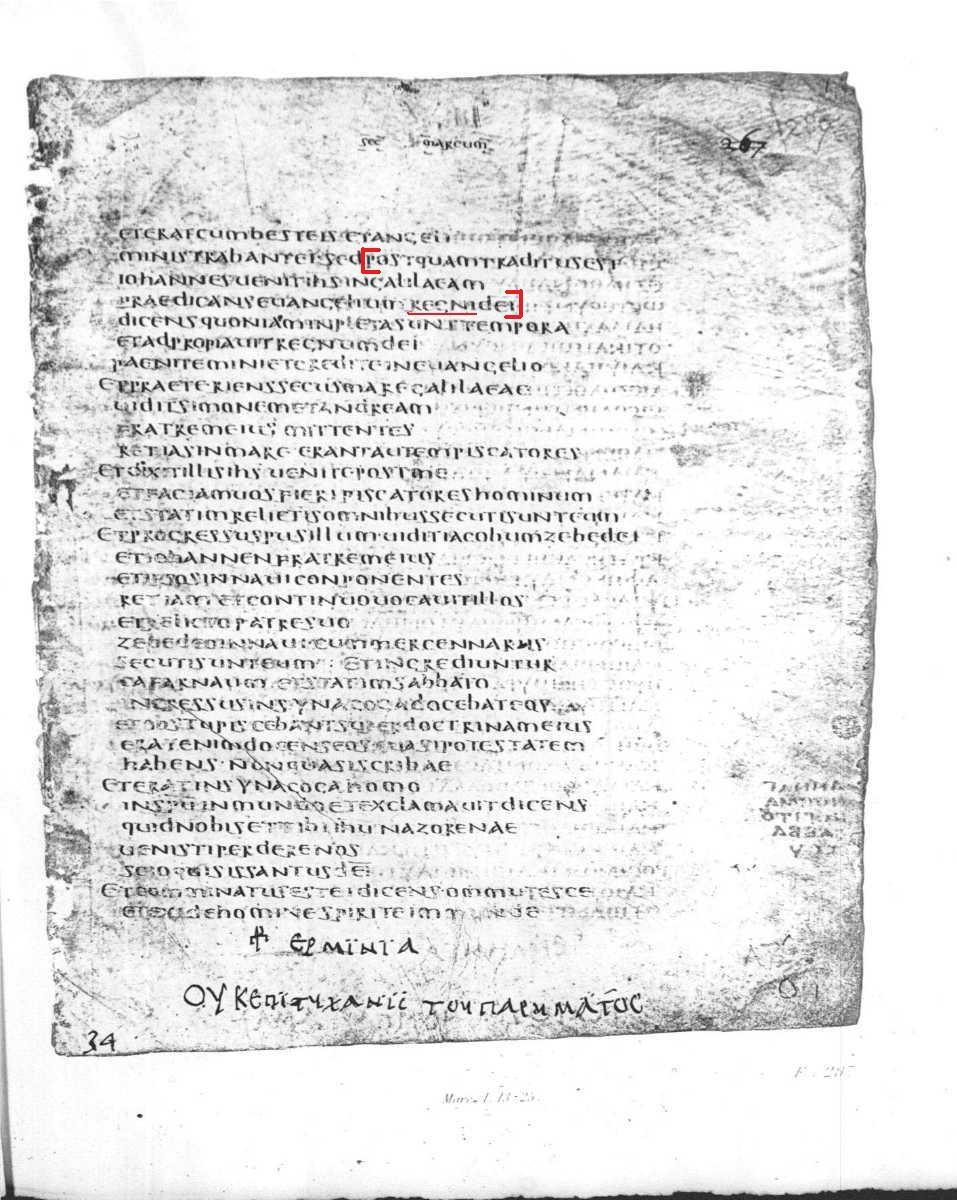 sec marcum
267
ETERATCUMBESTEISETANGELI
MINISTRABANTEI·SEDPOSTQUAMTRADITUSEST
IOHANNESUENITIHSINGALILAEAM
PRAEDICANSEUANGELIUMREGNIDEI
DICENSQUONIAMINPLETASUNTTEMPORA
ETADPROPIAUITREGNUMDEI
PAENITEMINIETCREDITEINEUANGELIO
ETPRAETERIENSSECUSMAREGALILAEAE
UIDITSIMONEMETANDREAM
FRATREMEIUS MITTENTES
RETIASINMARE·ERANTAUTEMPISCATORES
ETDIXITILLISIHSUENITEPOSTME
ETFACIAMUOSFIERIPISCATORESHOMINUM
ETSTATIMRELICTISOMNIBUSSECUTISUNTEUM
ETPROGRESSUSPUSILLUMUIDITIACOBUMZEBEDEI
ETIOHANNENFRATREMEIUS
ETIPSOSINNAUICONPONENTES
RETIAM·ETCONTINUOUOCAUITILLOS
ETRELICTOPATRESUO
ZEBEDEOINNAUICUMMERCENNARIIS
SECUTISUNTEUM: ETINGREDIUNTUR
CAFARNAUM ETSTATIMSABBATO
INGRESSUSINSYNAGOGADOCEBATEOS
ETOBSTUPISCEBANTSUPERDOCTRINAMEIUS
ERATENIMDOCENSEOSQUASIPOTESTATEM
HABENS·NONQUASISCRIBAE
ETERATINSYNAGOGAHOMO
INSPUINMUNDOETEXCLAMAUITDICENS
QUIDNOBISETTIBIIHUNAZORENAE
UENISTIPERDERENOS
SCIOQUISISSANTUSDEI
ETCOMMINATUSESTEIDICENSOMMUTESCE
ETEXIDEHOMINESPIRITEINMUNDE
ΕΡΜΙΝΙΑ
ΟΥΚΕΠΙΤΥΧΑΝΙϹ ΤΟΥΠΑΡΗΜΑΤΟϹ
34
F. 267
Marc. 1, 13-25.